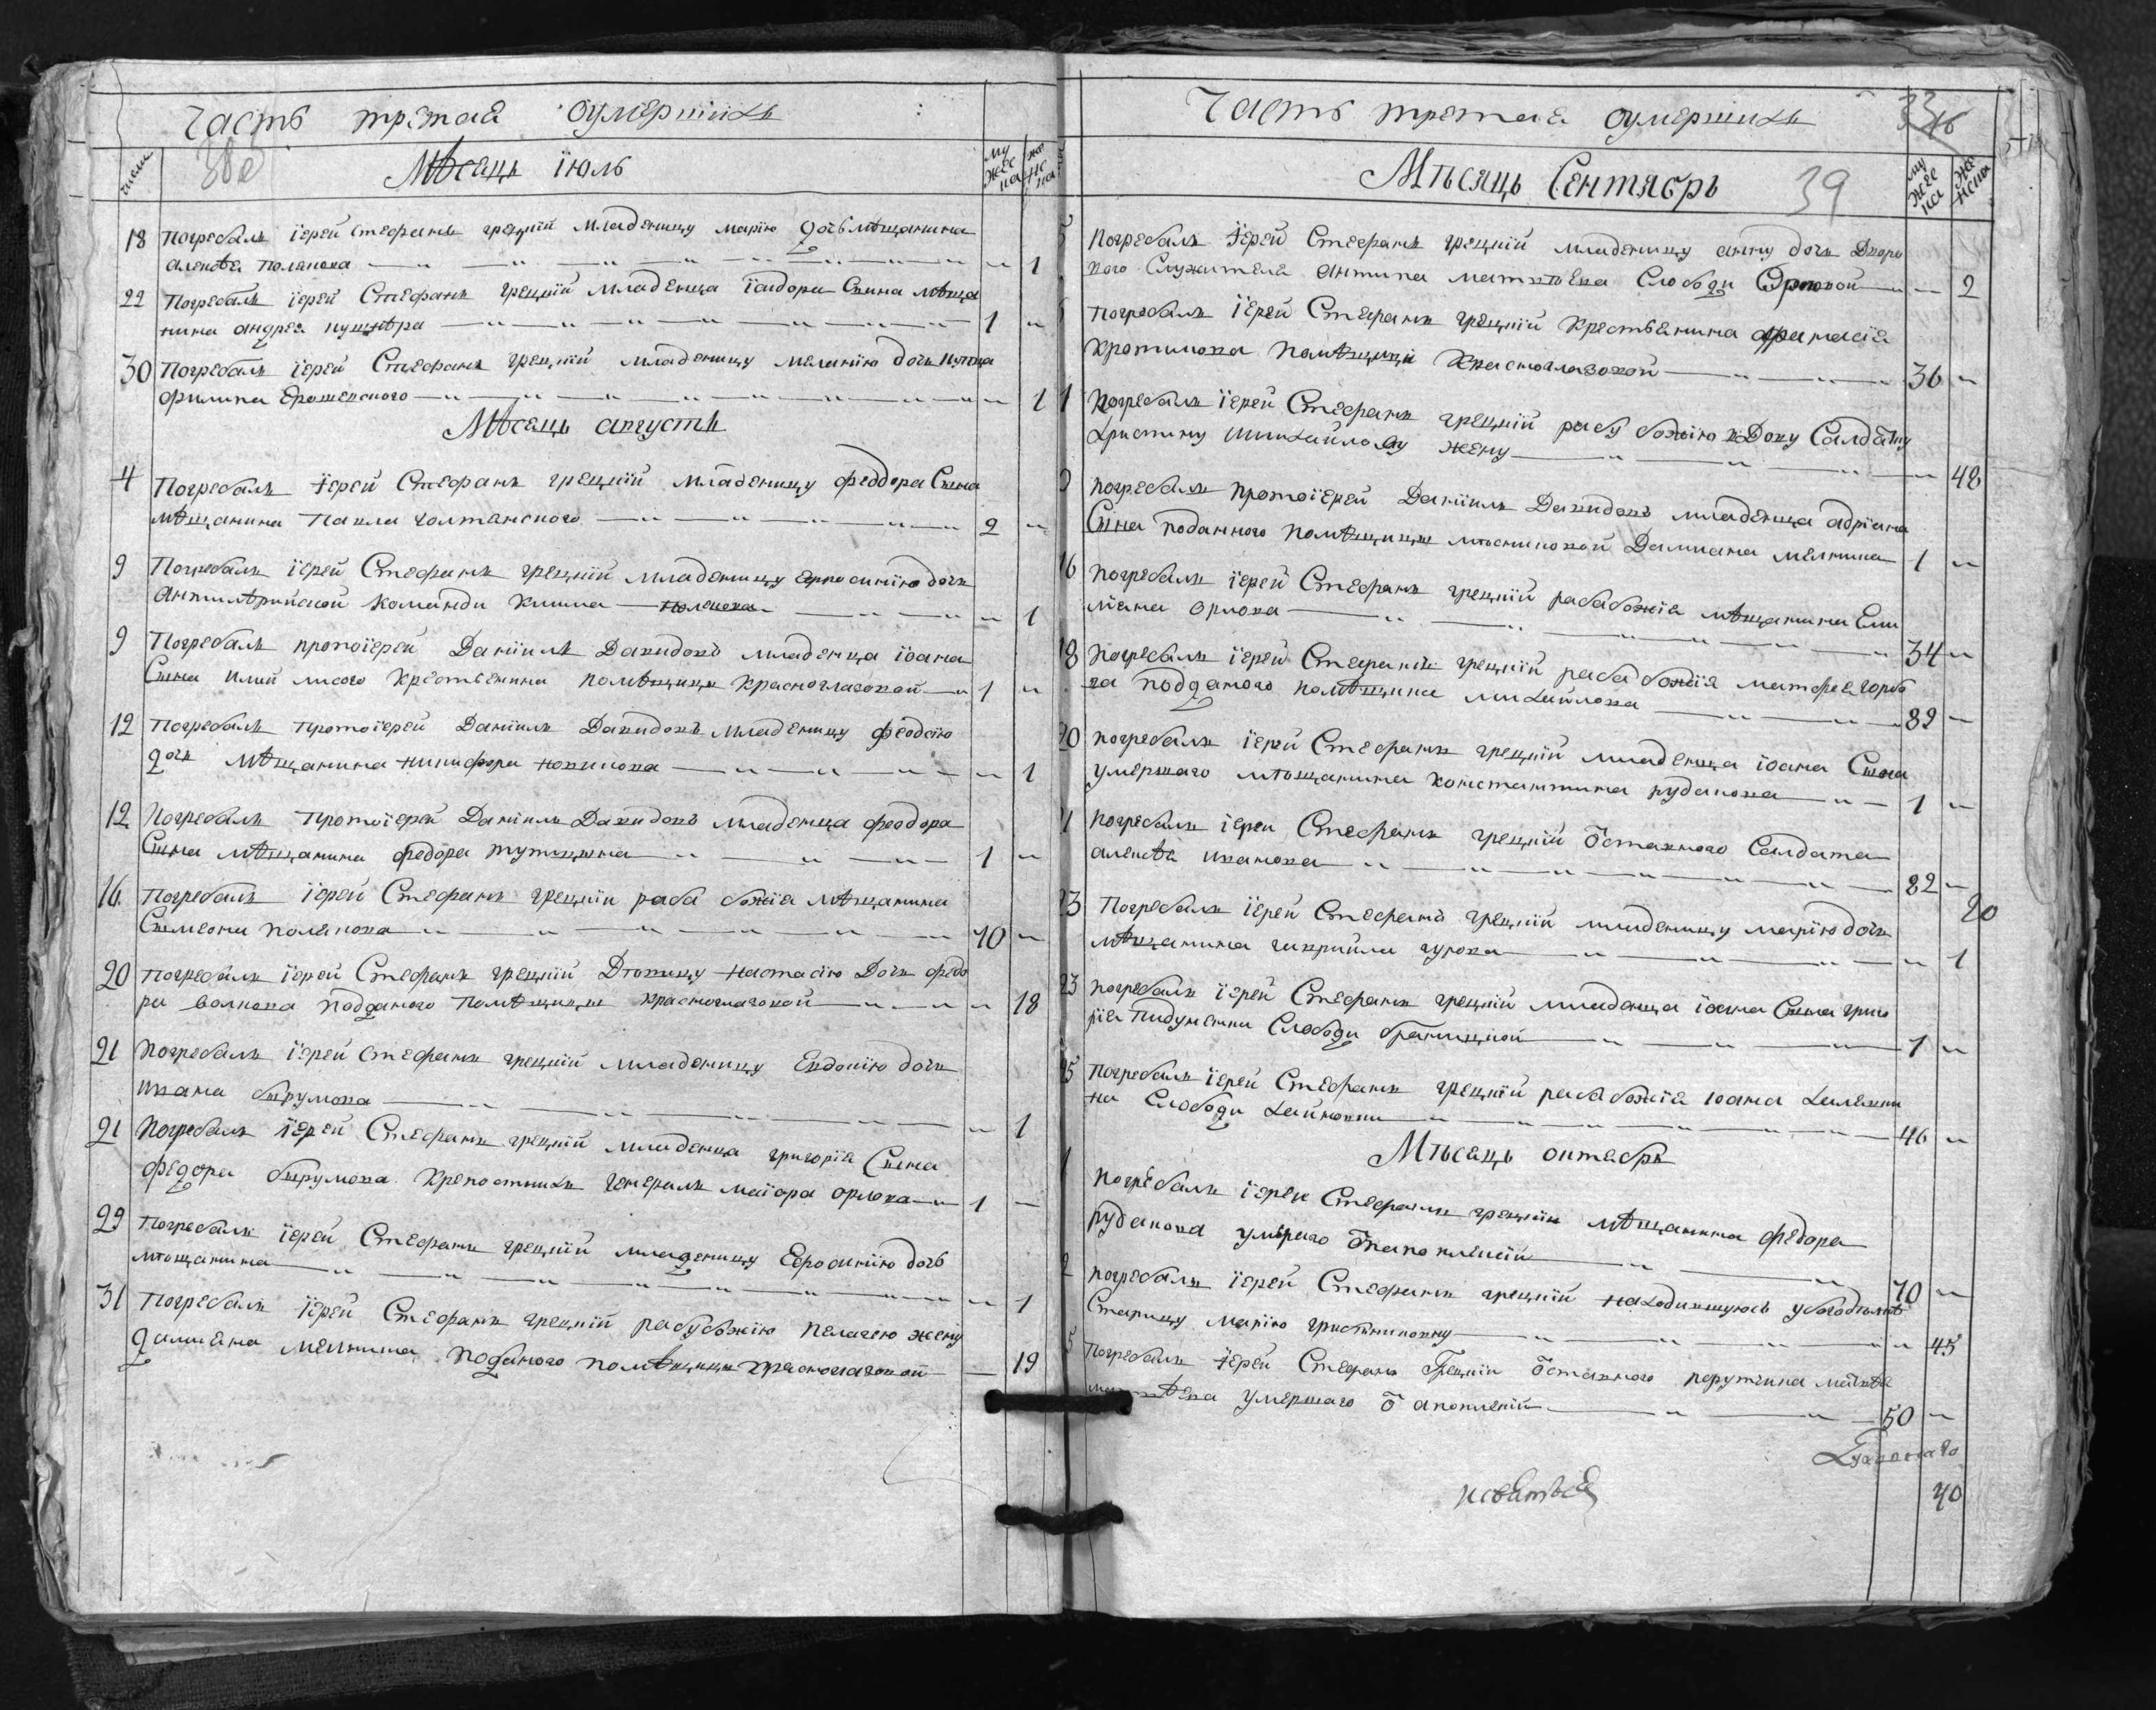 Часть третая оумершихъ
число
38об
Мѣсяць Їюль
му
жес
ка
же
нс
ка
18 Погребалъ іерей Стефанъ грецкій младеницу Марію дочь мѣщанина
алексѣя полякова 1
22 Погребалъ іерей Стефанъ грецкій младенца Їсидора Сына мѣща
нина андрея 1
30 Погребалъ іерей Стефанъ грецкій младеницу Меланію дочь купца
филипа Ерошевского 1
Мѣсяць августъ
4 Погребалъ іерей Стефанъ грецкій младеницу феодора Сына
мѣщанина Павла голтанского 2
9 Погребалъ іерей Стефанъ грецкій младеницу дочь
Антилерийской команди Клима 1
9 Погребалъ протоїерей Даніилъ Давидовъ младенца їоана
Сына Илии лисого Крестьянина помѣщици Красноглазовой 1
12 Погребалъ протоїерей Даніилъ Давидовъ младеницу феодсїю
дочь мѣщанина никифора новикова 1
12 Погребалъ протоїерей Даніилъ Давидовъ младенца феодора
Сына мѣщанина федора 1
16 Погребалъ іерей Стефанъ грецкій раба божія мѣщанина
Симеона полякова 70
20 Погребалъ іерей Стефанъ грецкій Дѣвицу настасію Дочь федо
ра волкова подданого помѣщици красноглазовой 18
21 Погребалъ іерей Стефанъ грецкій младеницу Евдокію дочь
ивана бырумова 1
21 Погребалъ іерей Стефанъ грецкій младенца григорія Сына
федора бырумова Крепостныхъ генералъ маіора орлова 1
29 Погребалъ іерей Стефанъ грецкій младеницу Ефросинію дочь
мѣщанина 1
31 Погребалъ іерей Стефанъ грецкій рабу божію пелагею жену
дамияна мелника поданого помѣщици красноглазовой 19
Часть третая оумершихъ
39
Мѣсяць Сентябрь
му
жес
ка
же
нска
5 Погребалъ іерей Стефанъ грецкій младеницу анну дочь Дворо
вого Служителя антипа матвѣева Слободи Орловой 2
Погребалъ іерей Стефанъ грецкій Крестьянина афанасія
кротикова помѣщици Красноглазовой 36
Погребалъ іерей Стефанъ грецкій рабу божію вдову Салдатку
христину михайлову жену 48
Погребалъ протоїерей Даніилъ Давидовъ младенца адріана
Сына поданного помѣщици Дамиана мелника 1
16 Погребалъ іерей Стефанъ грецкій раба божія мѣщанина Еми
лїана орлова 34
18 Погребалъ іерей Стефанъ грецкій раба божія матфея горб
подданого помѣщика михайлова 82
20 Погребалъ іерей Стефанъ грецкій младенца їоана Сына
умершаго мѣщанина константина рудакова 1
21 Погребалъ іерей Стефанъ грецкій ѿставного Салдата
алексѣя иванова 82
20
23 Погребалъ іерей Стефанъ грецкій младеницу марію дочь
мѣщанина гаврийла гурова 1
23 Погребалъ іерей Стефанъ грецкій младенца їоана Сына григо
рія Слободи 1
25 Погребалъ іерей Стефанъ грецкій раба божія їоана
Слободи 46
Мѣсяць октябрь
1 Погребалъ іерей Стефанъ грецкій мѣщанина федора
рудакова умершаго 70
2 Погребалъ іерей Стефанъ грецкій находившуюсь
Старицу марію 45
5 Погребалъ іерей Стефанъ Грецкій ѿставного
умершаго ѿ апоплексіи 50
40